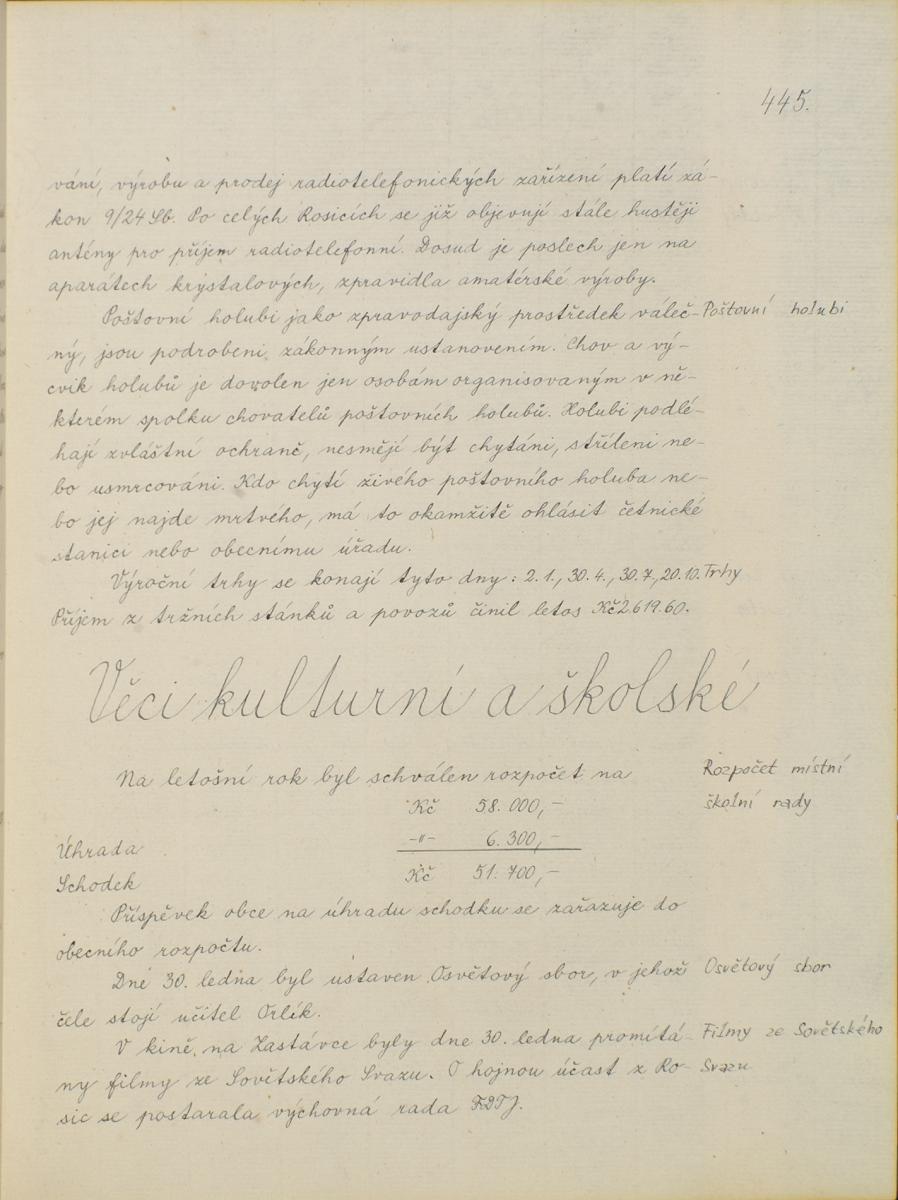 445.
vání, výrobu a prodej radiotelefonických zařízení platí zá-
kon 9/24 Sb. Po celých Rosicích se již objevují stále hustěji
antény pro příjem radiotelefonní. Dosud je poslech jen na
aparátech krystalových, zpravidla amatérské výroby.
Poštovní holubi jako zpravodajský prostředek váleč- Poštovní holubi
ný, jsou podrobeni zákonným ustanovením. Chov a vý-
cvik holubů je dovolen jen osobám organisovaným v ně-
kterém spolku chovatelů poštovních holubů. Holubi podlé-
hají zvláštní ochraně, nesmějí být chytáni, stříleni ne-
bo usmrcováni. Kdo chytí živého poštovního holuba ne-
bo jej najde mrtvého, má to okamžitě ohlásit četnické
stanici nebo obecnímu úřadu.
Výroční trhy se konají tyto dny: 2.1., 30.4., 30.7., 20.10. Trhy
Příjem z tržních stánků a povozů činil letos Kč 2619.60.
Věci kulturní a školské
Na letošní rok byl schválen rozpočet na Rozpočet místní
Kč 58.000,- školní rady
Úhrada -"- 6.300,-
Schodek Kč 51.700,-
Příspěvek obce na úhradu schodku se zařazuje do
obecního rozpočtu.
Dne 30. ledna byl ustaven Osvětový sbor, v jehož Osvětový sbor
čele stojí učitel Orlík.
V kině na Zastávce byly dne 30. ledna promítá- Filmy ze Sovětského
ny filmy ze Sovětského Svazu. O hojnou účast z Ro- Svazu
sic se postarala výchovná rada FDTJ.